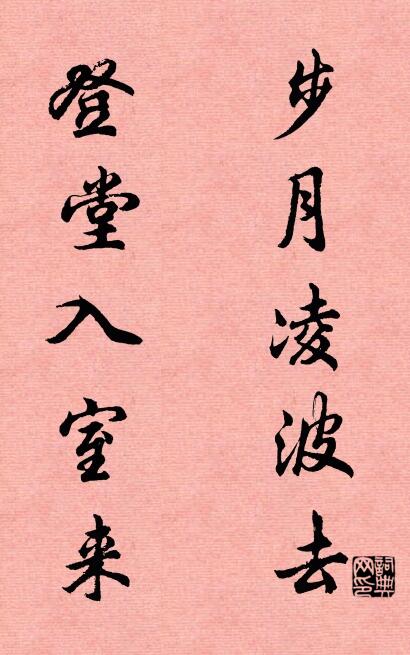 步月凌波去
登堂入室来
詞典
网印